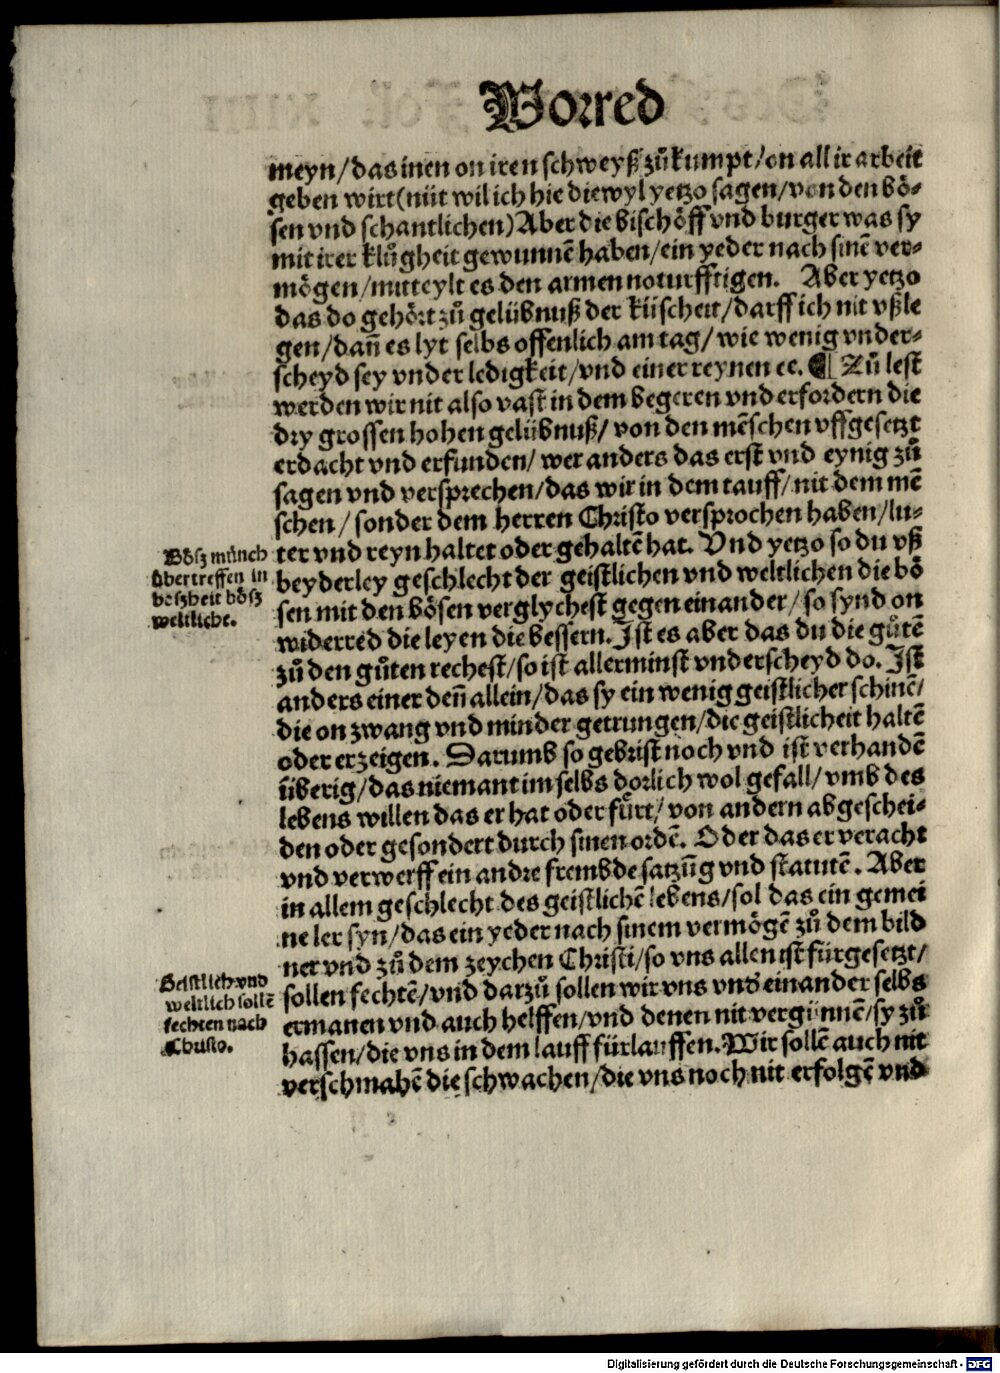 Vorred
meyn/das inen on iren schweyß zů kumpt/on all ir arbeit
geben wirt(nüt wil ich hie diewyl yetzo sagen/von den bö-
sen vnd schantlichen)Aber die bischöff vnd burger was sy
mit irer klůgheit gewunnẽ haben/ein yeder nach sinẽ ver-
mögen/mitteylt es den armen noturfftigen. Aber yetzo
das do gehört zů gelübnuß der küscheit/darff ich nit vßle
gen/dañ es lyt selbs offenlich am tag/wie wenig vnder-
scheyd sey vnder ledigkeit/vnd einer reynen ee. ¶ Zů lest
werden wir nit also vast in dem begeren vnd erfordern die
dry grossen hohen gelübnuß/von den mẽschen vffgesetzt
erdacht vnd erfunden/wer anders das erst vnd eynig zů
sagen vnd versprechen/das wir in dem tauff/nit dem mẽ
schen/sonder dem herren Christo versprochen haben/lu-
ter vnd reyn haltet oder gehaltẽ hat. Vnd yetzo so du vß
beyderley geschlecht der geistlichen vnd weltlichen die bö
sen mit den bösen verglychest gegen einander/so synd on
widerred die leyen die bessern. Ist es aber das du die gůtẽ
zů den gůten rechest/so ist allerminst vnderscheyd do. Ist
anders einer deñ allein/das sy ein wenig geistlicher schinẽ/
die on zwang vnd minder getrungen/die geistlicheit haltẽ
oder erzeigen. Darumb so gebrist noch vnd ist verhandẽ
überig/das niemant im selbs dorlich wol gefall/vmb des
lebens willen das er hat oder fürt/von andern abgeschei-
den oder gesondert durch sinen ordẽ. Oder das er veracht
vnd verwerff ein andre frembde satzũg vnd statutẽ. Aber
in allem geschlecht des geistlichẽ lebens/sol das ein gemei
ne ler syn/das ein yeder nach sinem vermögẽ zů dem bild
ner vnd zů dem zeychen Christi/so vns allen ist fürgesetzt/
sollen fechtẽ/vnd darzů sollen wir vns vnd einander selbs
ermanen vnd auch helffen/vnd denen nit vergünnẽ/sy zů
hassen/die vns in dem lauff fürlauffen. Wir sollẽ auch nit
verschmahẽ die schwachen/die vns noch nit erfolgẽ vnd
Bösz münch
übertreffen in
beszheit bösz
weltliche.
Geistlich vnd
weltlich sollẽ
fechten nach
Christo.
Digitalisierung gefördert durch die Deutsche Forschungsgemeinschaft - DFG